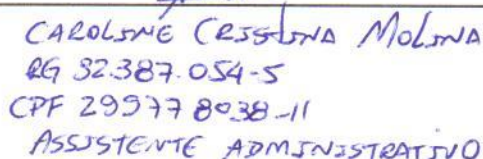 CAROLINE CRISTINA MOLINA
RG 32.387.054-5
CPF 299778038-11
ASSISTENTE ADMINISTRATIVO